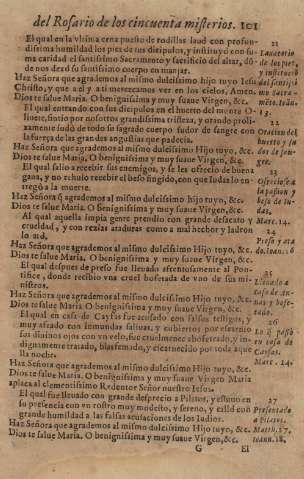 del Rosario de los cincuenta misterios. 101
El qual en la vltima cena puesto de rodillas lauó con profun-
dissima humildad los pies de sus dicipulos, y instituyó con su-
ma caridad el santissimo Sacramento y sacrificio del altar, dó-
de nos dexó su santissimo cuerpo en manjar.
21
Lauatorio
de los pies,
y institució
del santissi-
mo Sacra-
méto. Ioan.
13.
Haz Señora que agrademos al mismo dulcissimo hijo tuyo Iesu
Christo, y que a el y a ti merezcamos ver en los cielos, Amen.
Dios te salue Maria, O benignissima y muy suaue Virgen, &c.
El qual entrando con sus dicipulos en el huerto del monte O-
liuete, sintio por nosotros grandissima tristeza, y orando proli-
xamente sudó de todo su sagrado cuerpo sudor de sangre con
la fuerça de las grandes angustias que padecia.
22
Oracion del
huerto y su-
dor de san-
gre.
Haz Señora que agrademos al mismo dulcissimo Hijo tuyo, &c.
Dios te salue Maria, O benignissima y muy suaue Virgen, &c.
El qual salio a recebir sus enemigos, y se les ofrecio de buena
gana, y no rehuso recebir el beso fingido, con que Iudas lo en-
tregó a la muerte.
23
Ofreciose a
la passion y
beso de Iu-
das,
Marc. 14.
Haz Señora que agrademos al mismo dulcissimo Hijo tuyo, &c.
Dios te salue Maria, O benignissima y muy suaue Virgen, &c.
Al qual aquella impia gente prendio con grande desacato y
crueldad, y con rezias ataduras como a mal hechor y ladron
lo ató,
24
Preso y ata
do. Ioan. 18
Haz Señora que agrademos al mismo dulcissimo Hijo tuyo, &c.
Dios te salue Maria, O benignissima y muy suaue Virgen, &c.
El qual despues de preso fue lleuado afrentosamente al Pon-
tifice, donde recibio vna cruel bofetada de vno de sus mi-
nistros.
25
Lleuado a
casa de An-
nas y bofe-
tado.
Haz Señora que agrademos al mismo dulcissimo Hijo tuyo, &c.
Dios te salue Maria, O benignissima y muy suaue Virgen, &c.
El qual en casa de Cayfas fue acusado con falsos testigos, y
muy afeado con inmundas saliuas, y cubiertos por escarnio
sus diuinos ojos con vn velo, fue cruelmente abofeteado, y in-
dignamente tratado, blasfemado, y escarnecido por toda aque
lla noche.
26
Lo q̃ passó
en casa de
Caifas.
Marc. 14.
Haz Señora que agrademos al mismo dulcissimo Hijo tuyo, &c.
Dios te salue Maria, O benignissima y muy suaue Virgen Maria
aplaca al clementissimo Redentor Señor nuestro Iesus.
El qual fue lleuado con grande desprecio a Pilatos, y estuuo en
su presencia con rostro muy modesto, y sereno, y calló con
grande humildad a las falsas acusaciones de los Iudios.
27
Presentado
a Pilatos.
Matth. 27,
Ioann. 18,
Haz Señora que agrademos al mismo dulcissimo Hijo tuyo, &c.
Dios te salue Maria, O benignissima y muy suaue Virgen, &c.
G El